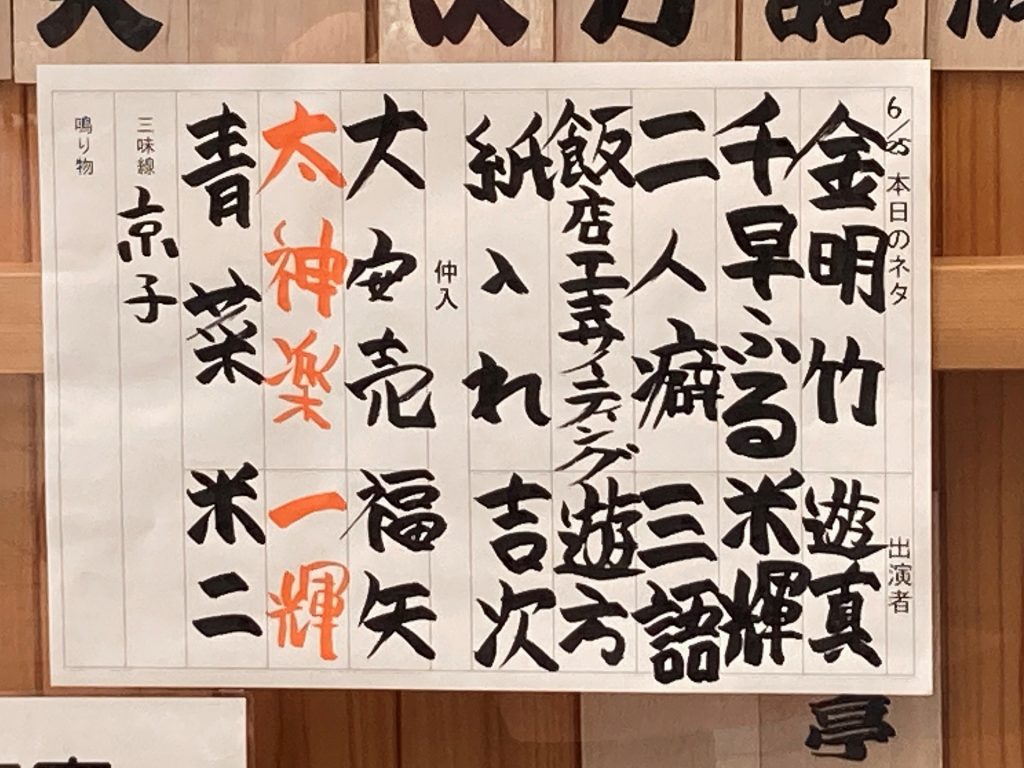 6/25 本日のネタ 出演者
金明竹 遊真
千早ふる 米輝
二人癖 三語
飯店エキサイティング 遊方
紙入れ 吉次
仲入
大安売 福矢
太神楽 一輝
青菜 米二
三味線 京子
鳴り物
亭